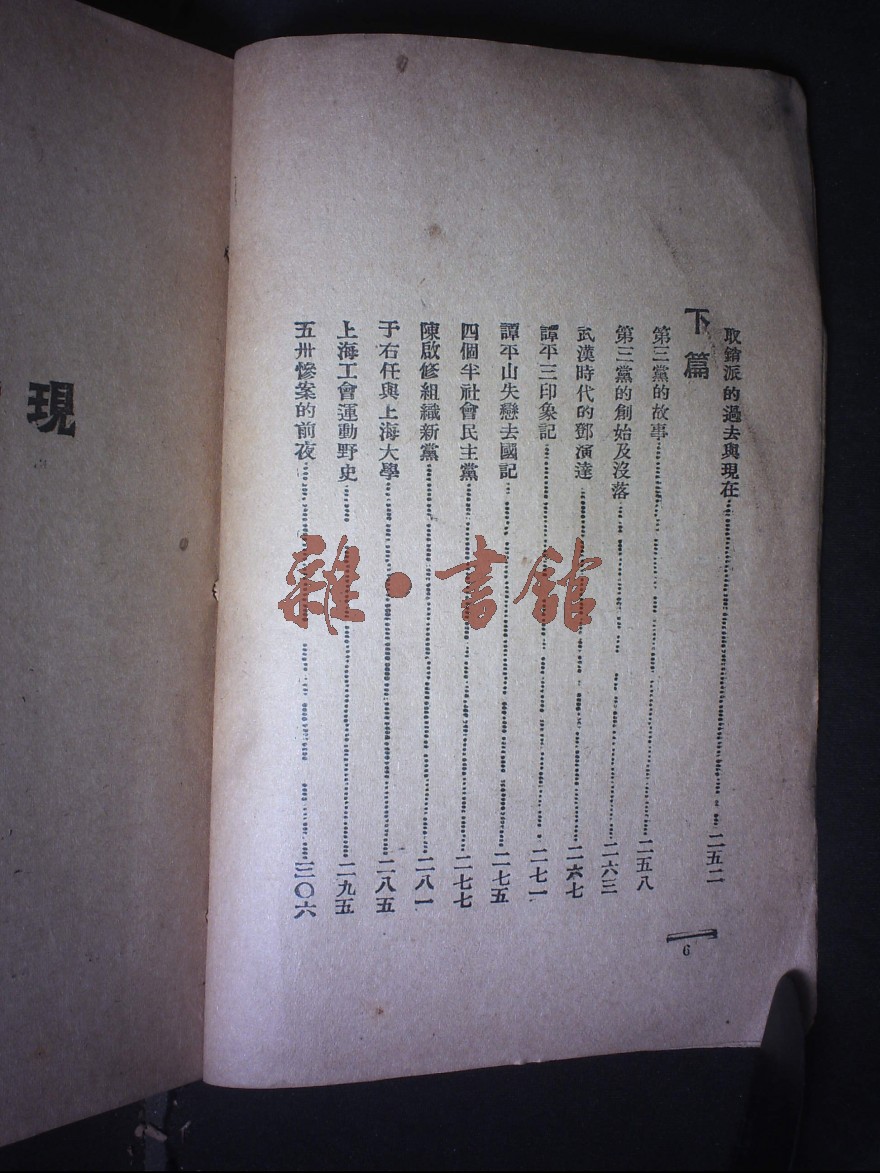 取銷派的過去與現在……二五二
下篇
第三黨的故事……二五八
第三黨的創始及沒落……二六三
武漢時代的鄧演達……二六七
譚平三印象記……二七一
譚平山失戀去國記……二七五
四個半社會民主黨……二七七
陳啟修組織新黨……二八一
于右任與上海大學……二八五
上海工會運動野史……二九五
五卅慘案的前夜……三〇六
6
現
雜·書館